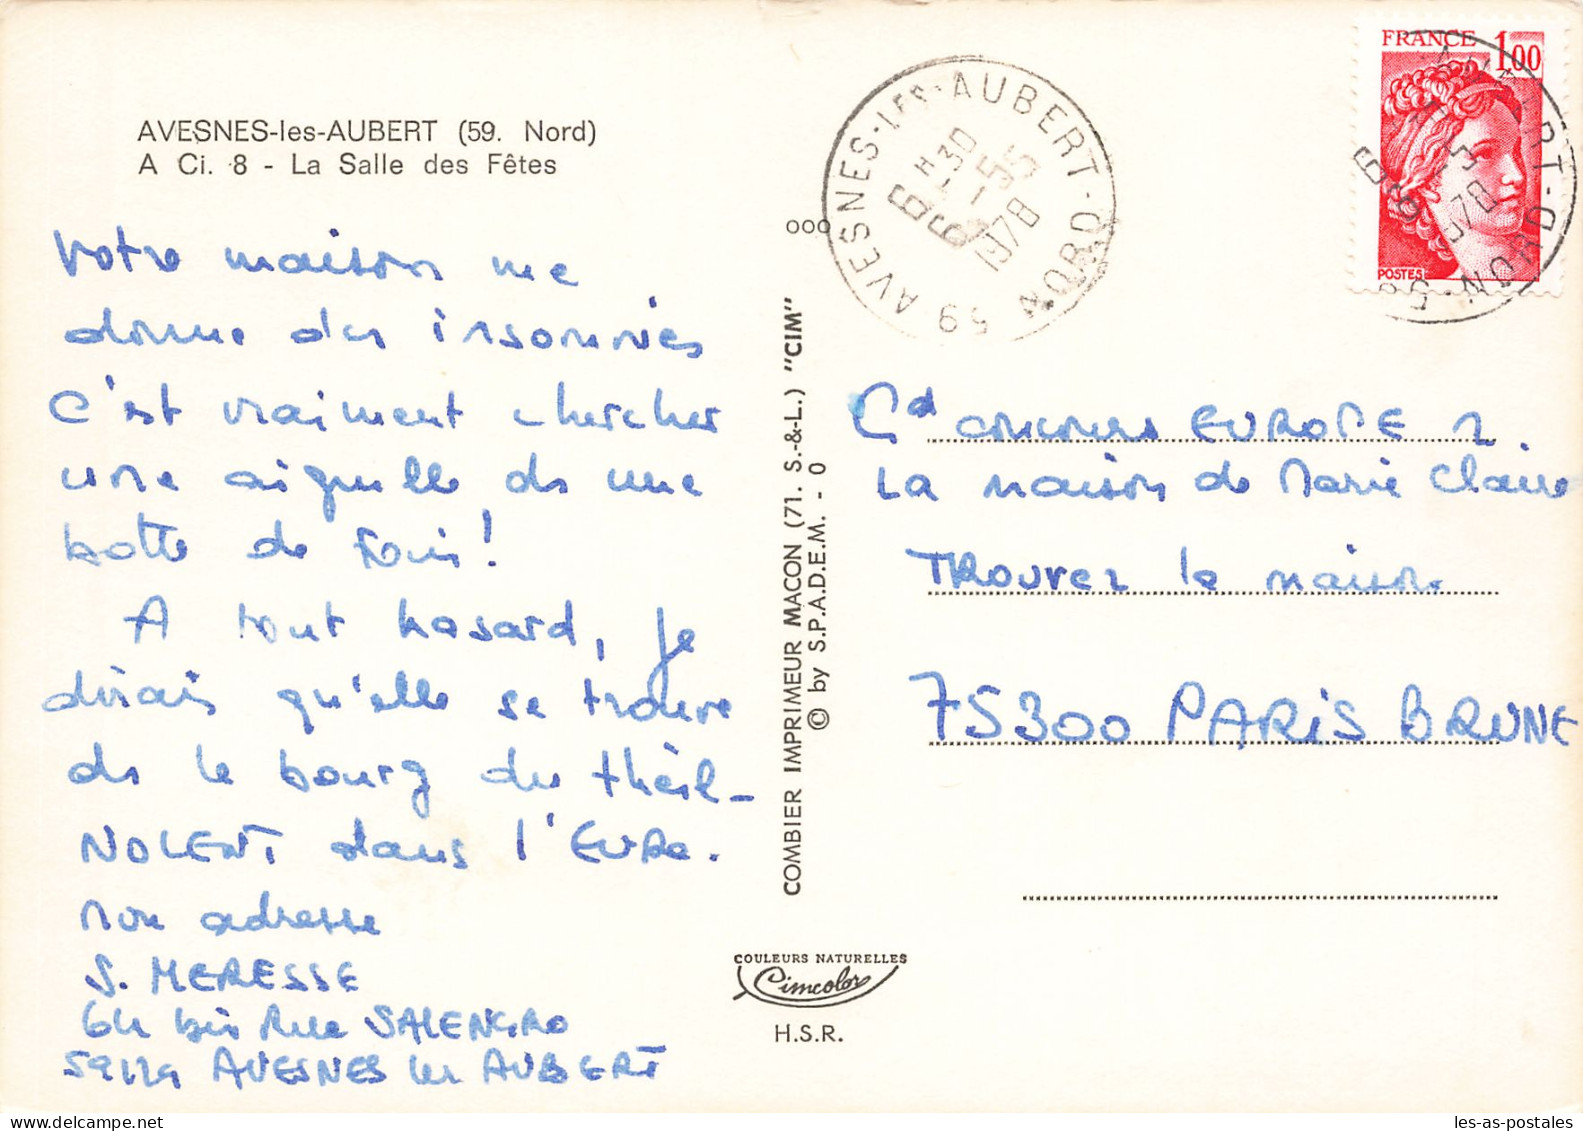 AVESNES-les-AUBERT (59. Nord)
A Ci. 8 - La Salle des Fêtes
Votre maison me
donne des insomnies
C'est vraiment chercher
une aiguille ds une
botte de Foin!
A tout hasard, je
dirais qu'elle se trouve
ds le bourg du theil-
NOLENT dans l'EURE.
mon adresse
S. MERESSE
64 bis Rue SALENGRO
59129 AVESNES les AUBERT
COMBIER IMPRIMEUR MACON (71. S.-&-L.) "CIM"
© by S.P.A.D.E.M. - 0
000
COULEURS NATURELLES
Cimcolor
H.S.R.
59 AVESNES-LES-AUBERT - NORD
1978
FRANCE 1,00
POSTES
Gd concours EUROPE 1
La maison de Marie Claire
TROUVEZ la maison
75300 PARIS BRUNE
les-as-postales